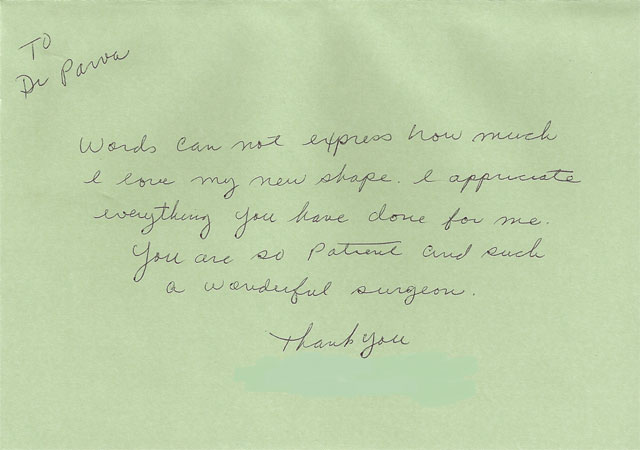 To
Dr Parva
Words can not express how much
I love my new shape. I appriciate
everything you have done for me.
You are so Patient and such
a wonderful surgeon.
Thank you